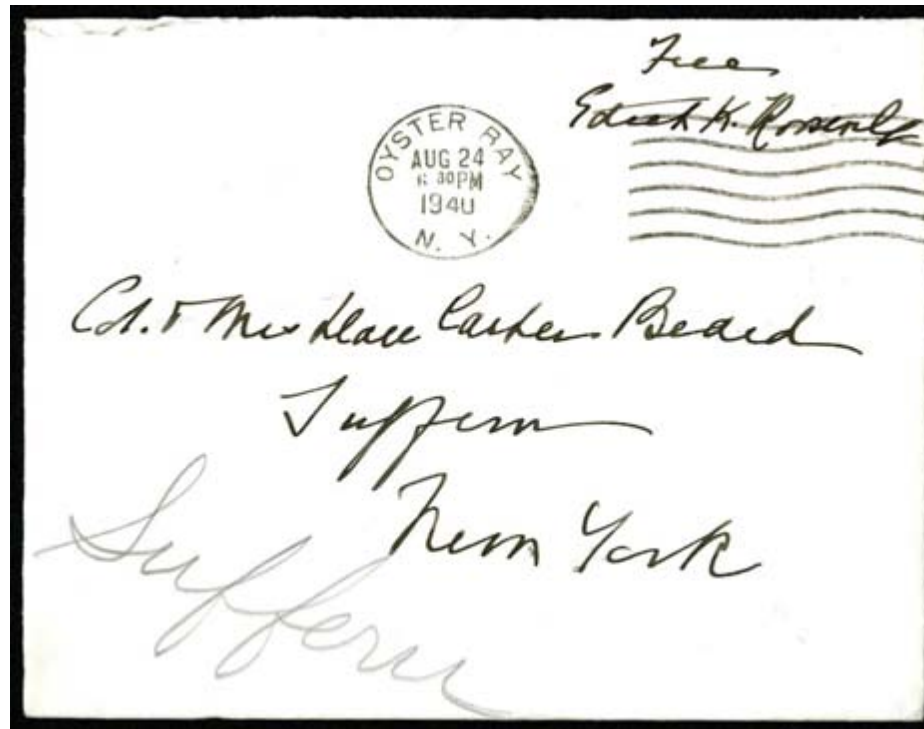 Free
Edith K. Roosevelt
OYSTER BAY
AUG 24
6 30 PM
1940
N. Y.
Col. & Mrs Carter Beard
Suffern
New York
Suffern